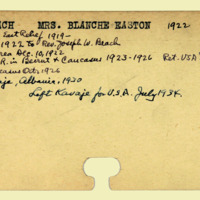 ACH MRS. BLANCHE EASTON 1922
East Relief 1919-
1922 to Rev. Joseph W. Beach
Dec. 10, 1922
R. in Beirut & Caucasus 1923-1926 Ret. USA
Oct. 1926
Albania, 1930
Left Kavaje for U.S.A. July 1934